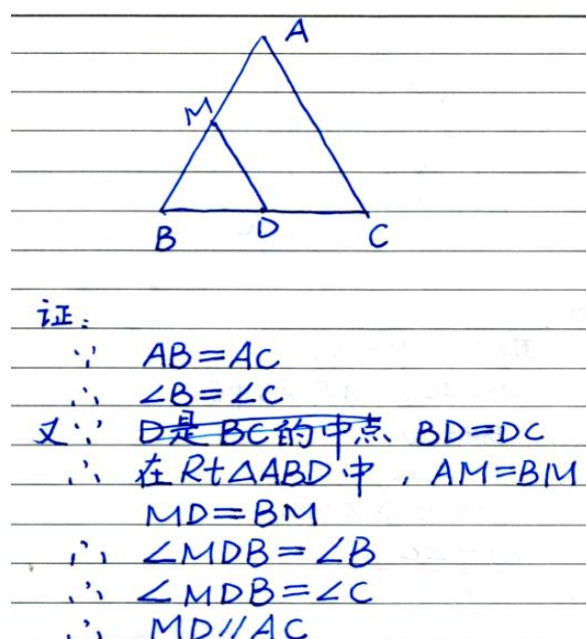 A
M
B D C
证:
∵ AB=AC
∴ ∠B=∠C
又∵ D是BC的中点 BD=DC
∴ 在Rt△ABD中,AM=BM
MD=BM
∴ ∠MDB=∠B
∴ ∠MDB=∠C
∴ MD//AC